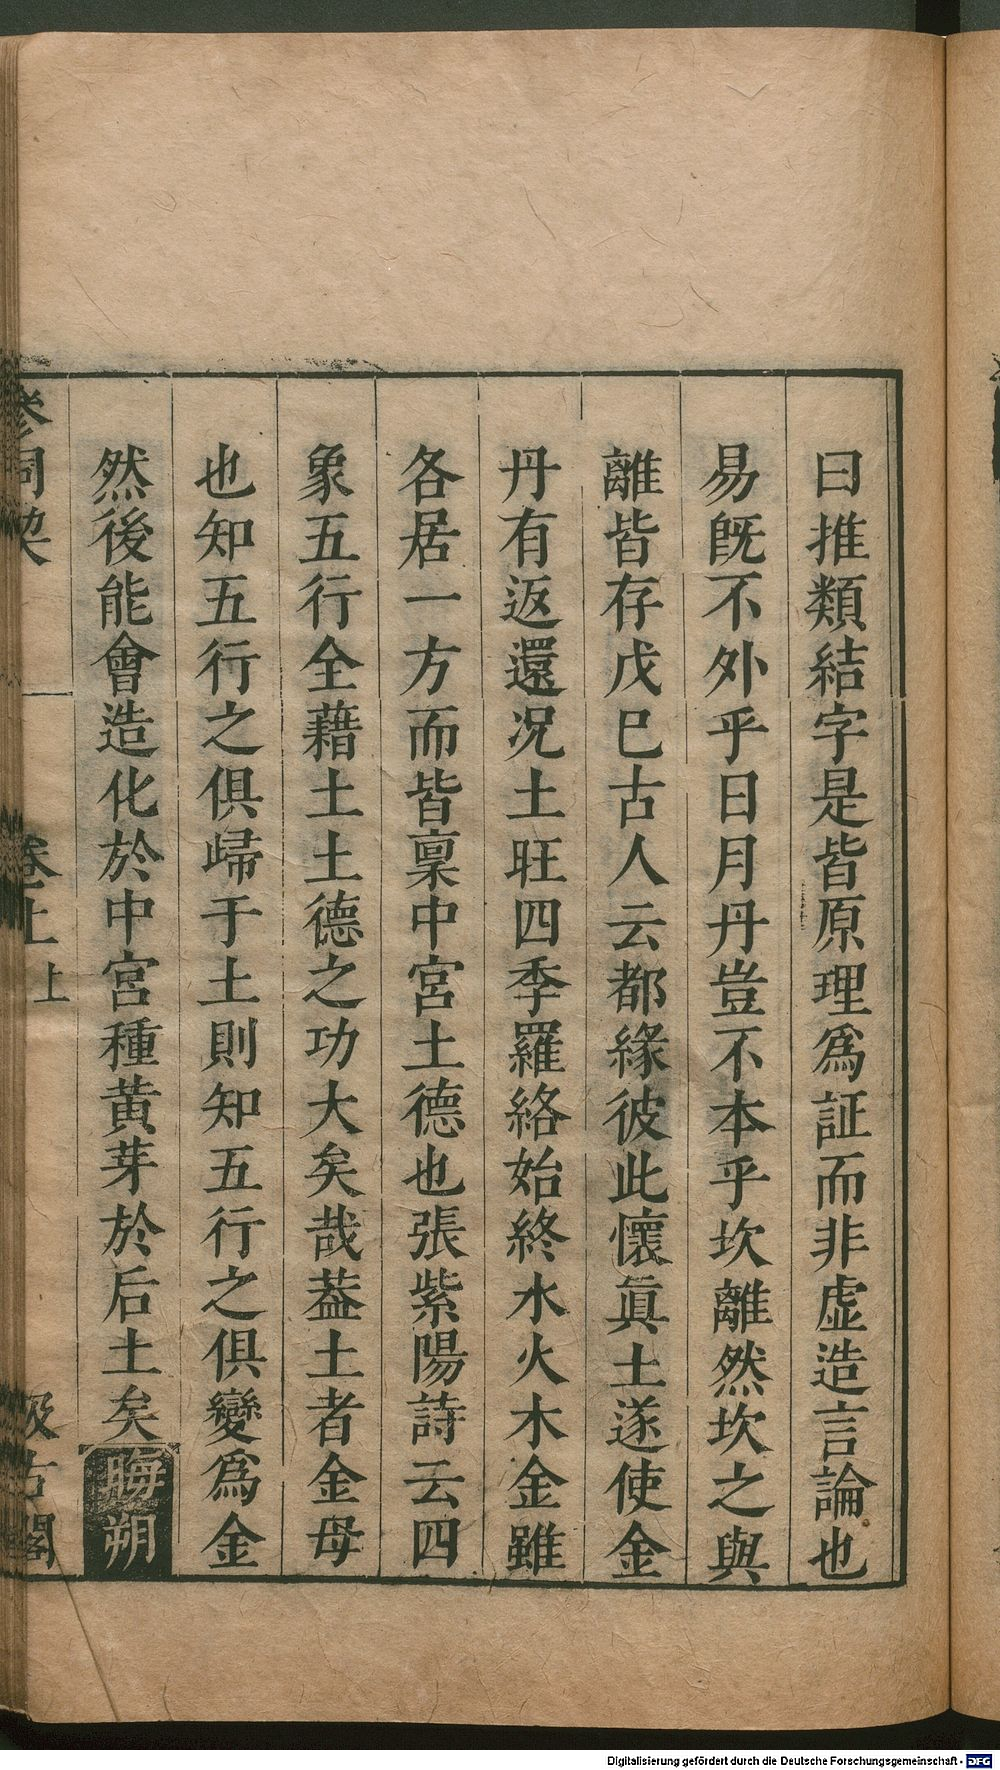 曰推類結字是皆原理爲証而非虛造言論也
易旣不外乎日月丹豈不本乎坎離然坎之與
離皆存戊巳古人云都緣彼此懷眞土遂使金
丹有返還况土旺四季羅絡始終水火木金雖
各居一方而皆稟中宮土德也張紫陽詩云四
象五行全藉土土德之功大矣哉葢土者金母
也知五行之俱歸于土則知五行之俱變爲金
然後能會造化於中宮種黄芽於后土矣晦朔
參同契
卷上
上
汲古閣
Digitalisierung gefördert durch die Deutsche Forschungsgemeinschaft - DFG